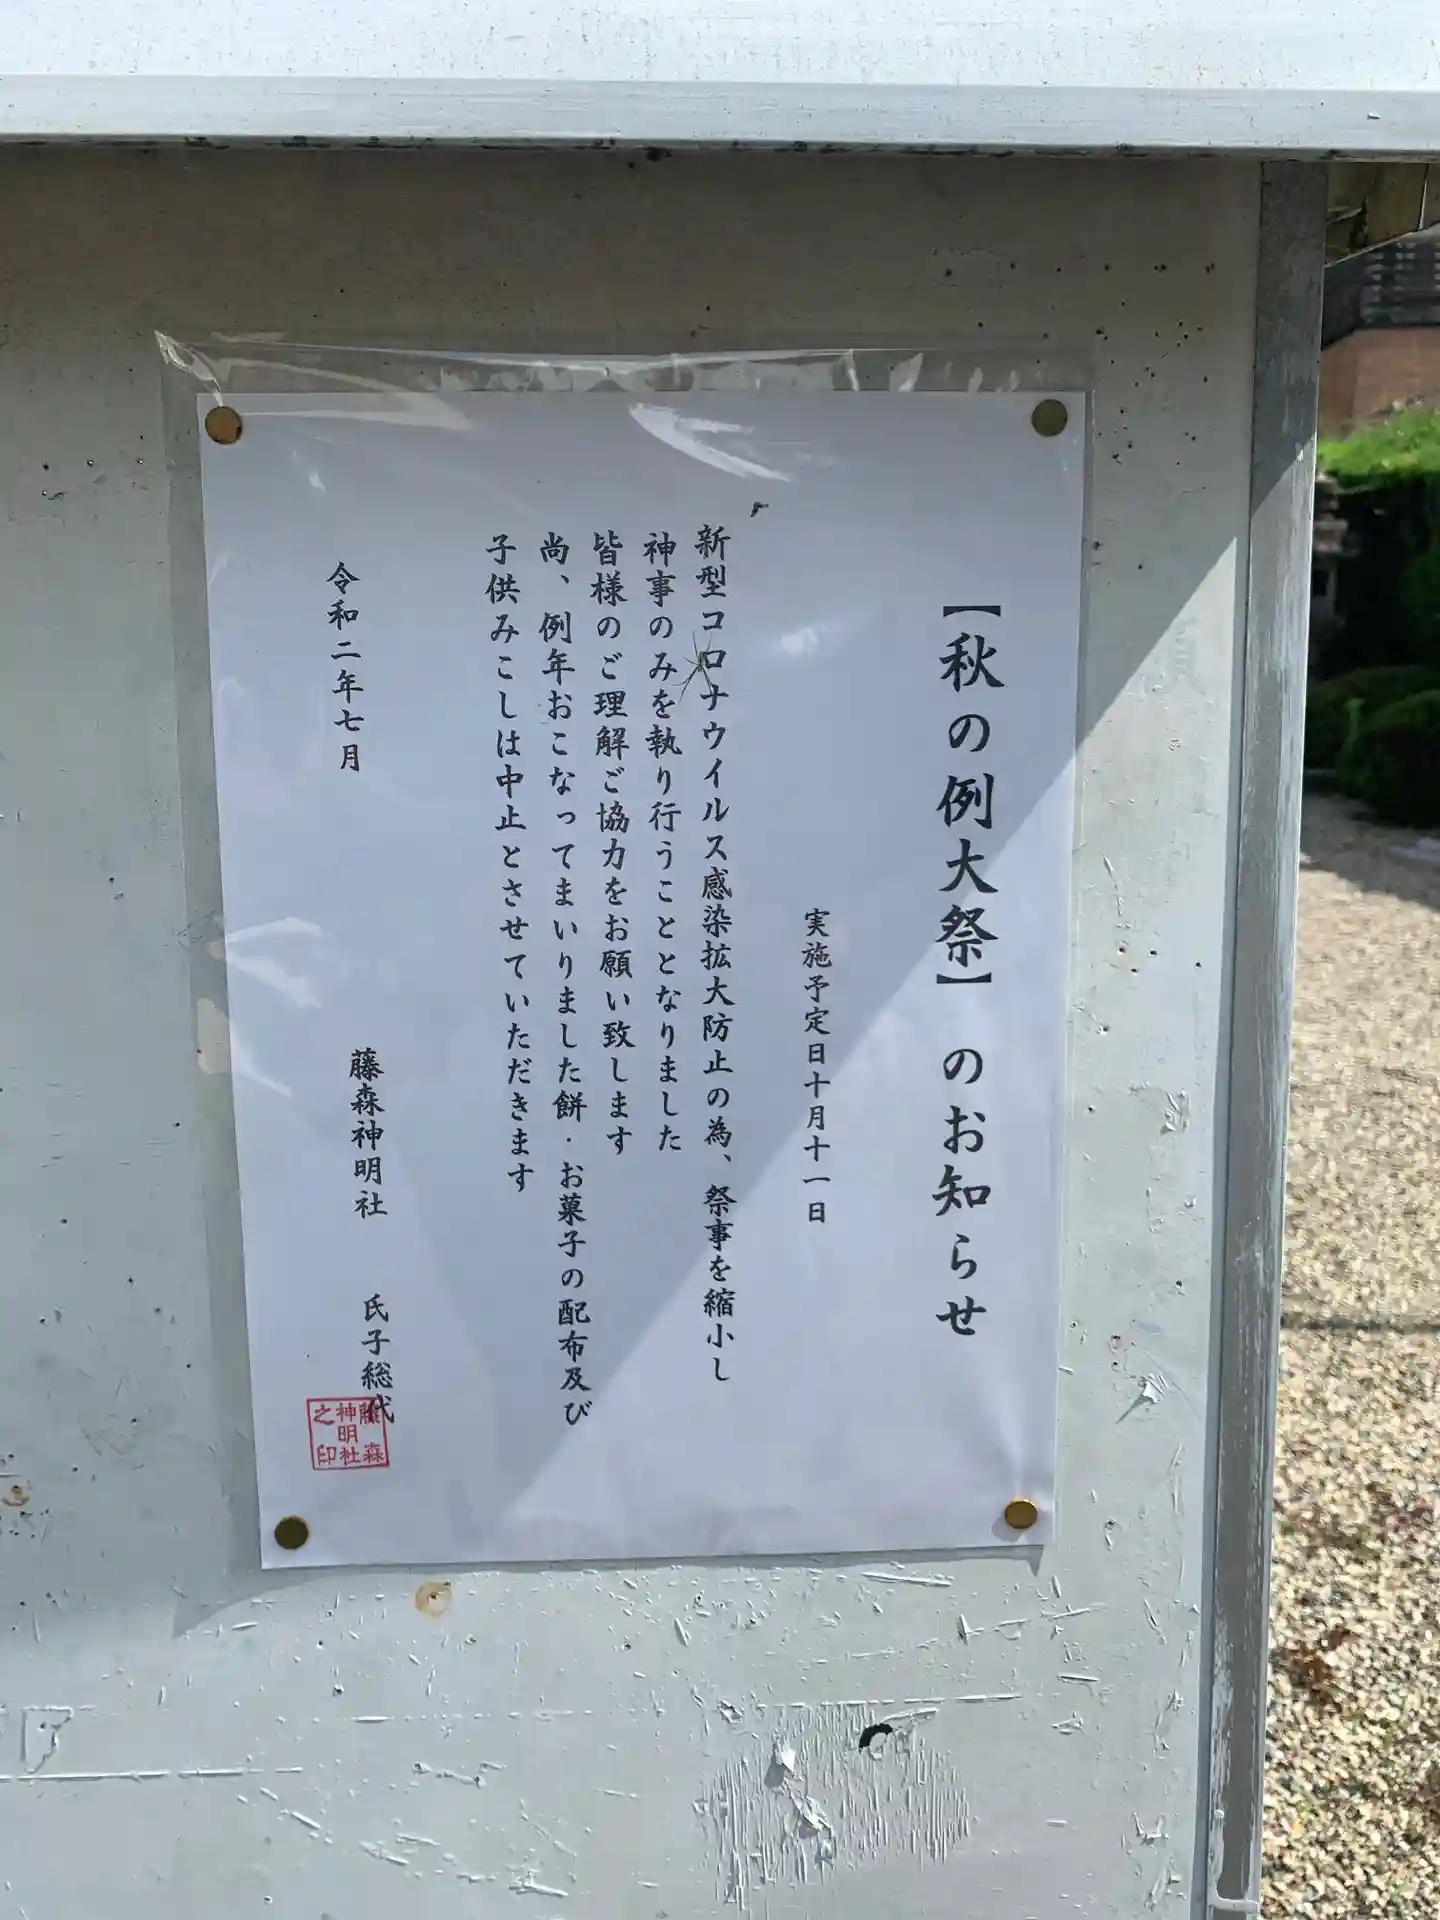 【秋の例大祭】のお知らせ
実施予定日十月十一日
新型コロナウイルス感染拡大防止の為、祭事を縮小し
神事のみを執り行うこととなりました
皆様のご理解ご協力をお願い致します
尚、例年おこなってまいりました餅・お菓子の配布及び
子供みこしは中止とさせていただきます
令和二年七月
藤森神明社 氏子総代
藤森
神明社
之印